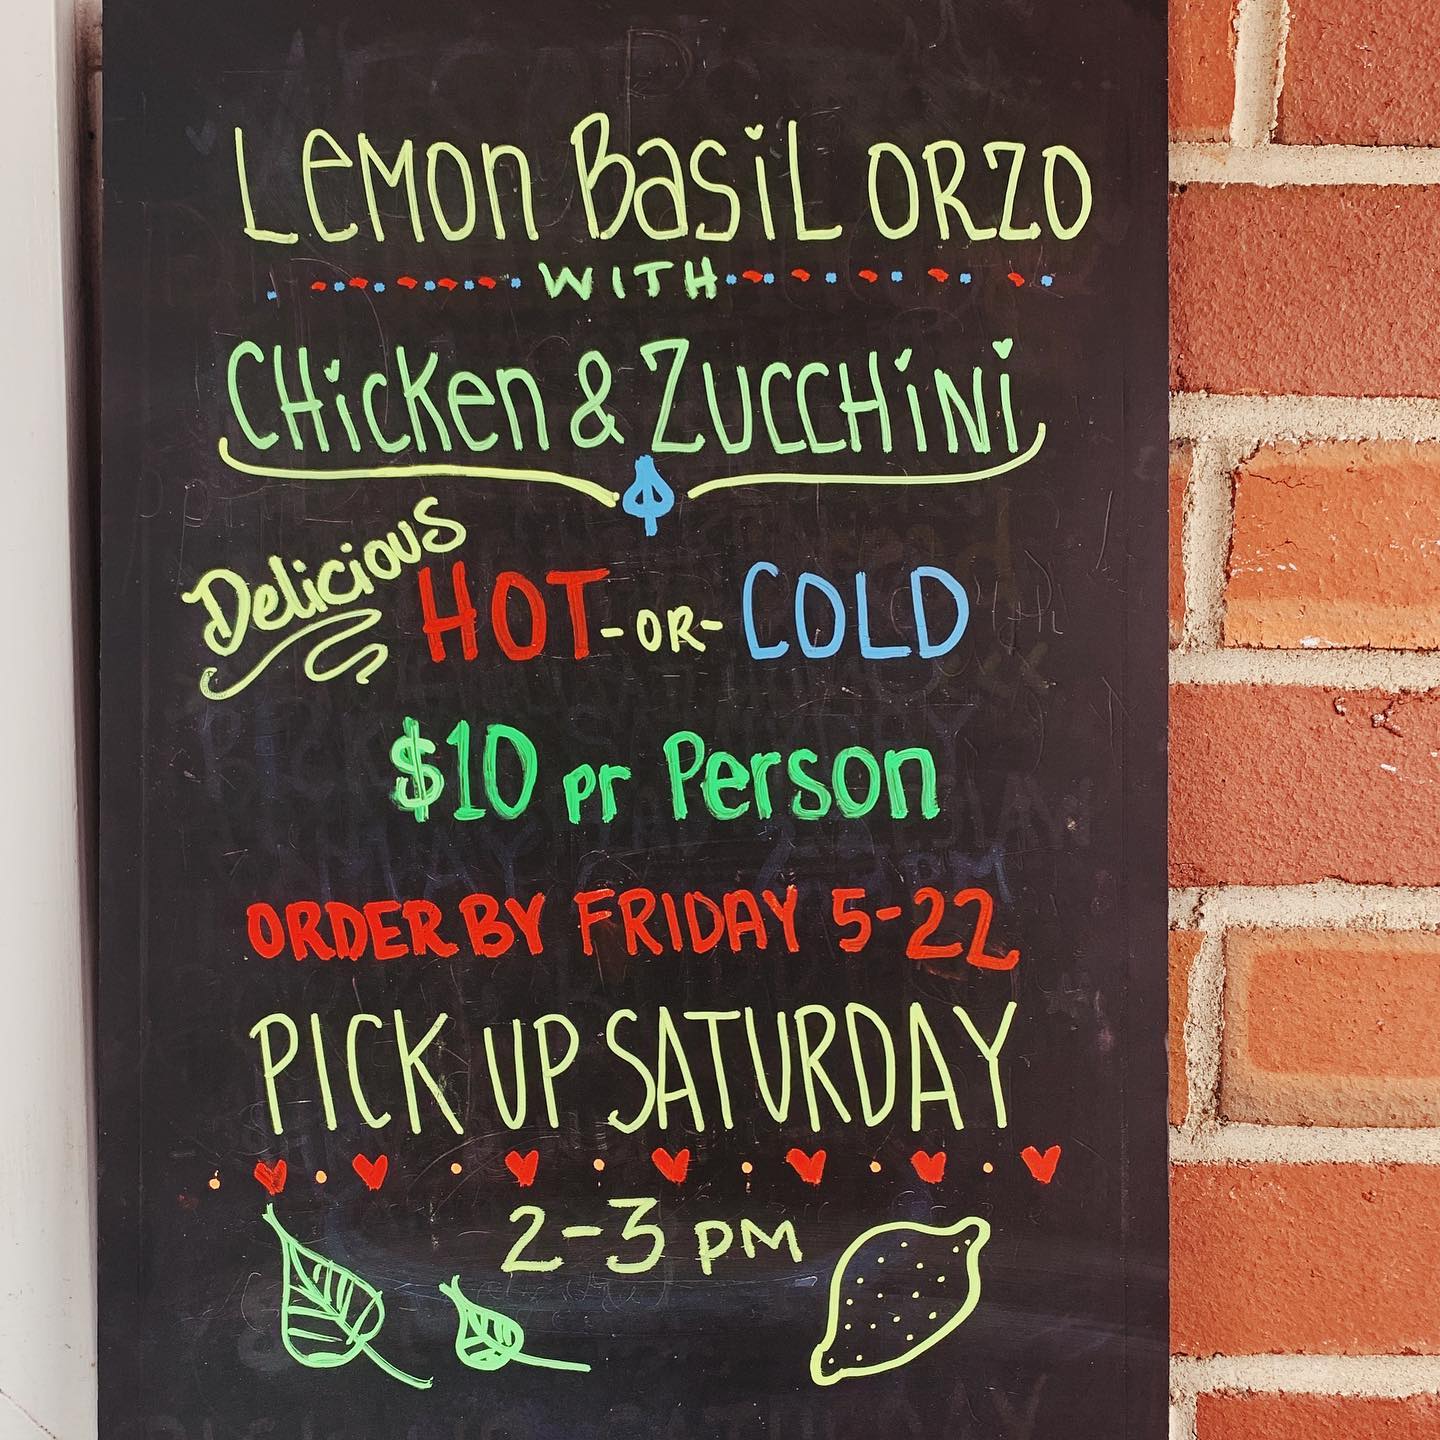 Lemon Basil Orzo
WITH
Chicken & Zucchini
Delicious HOT -OR- COLD
$10 pr Person
ORDER BY FRIDAY 5-22
PICK UP SATURDAY
2-3 PM